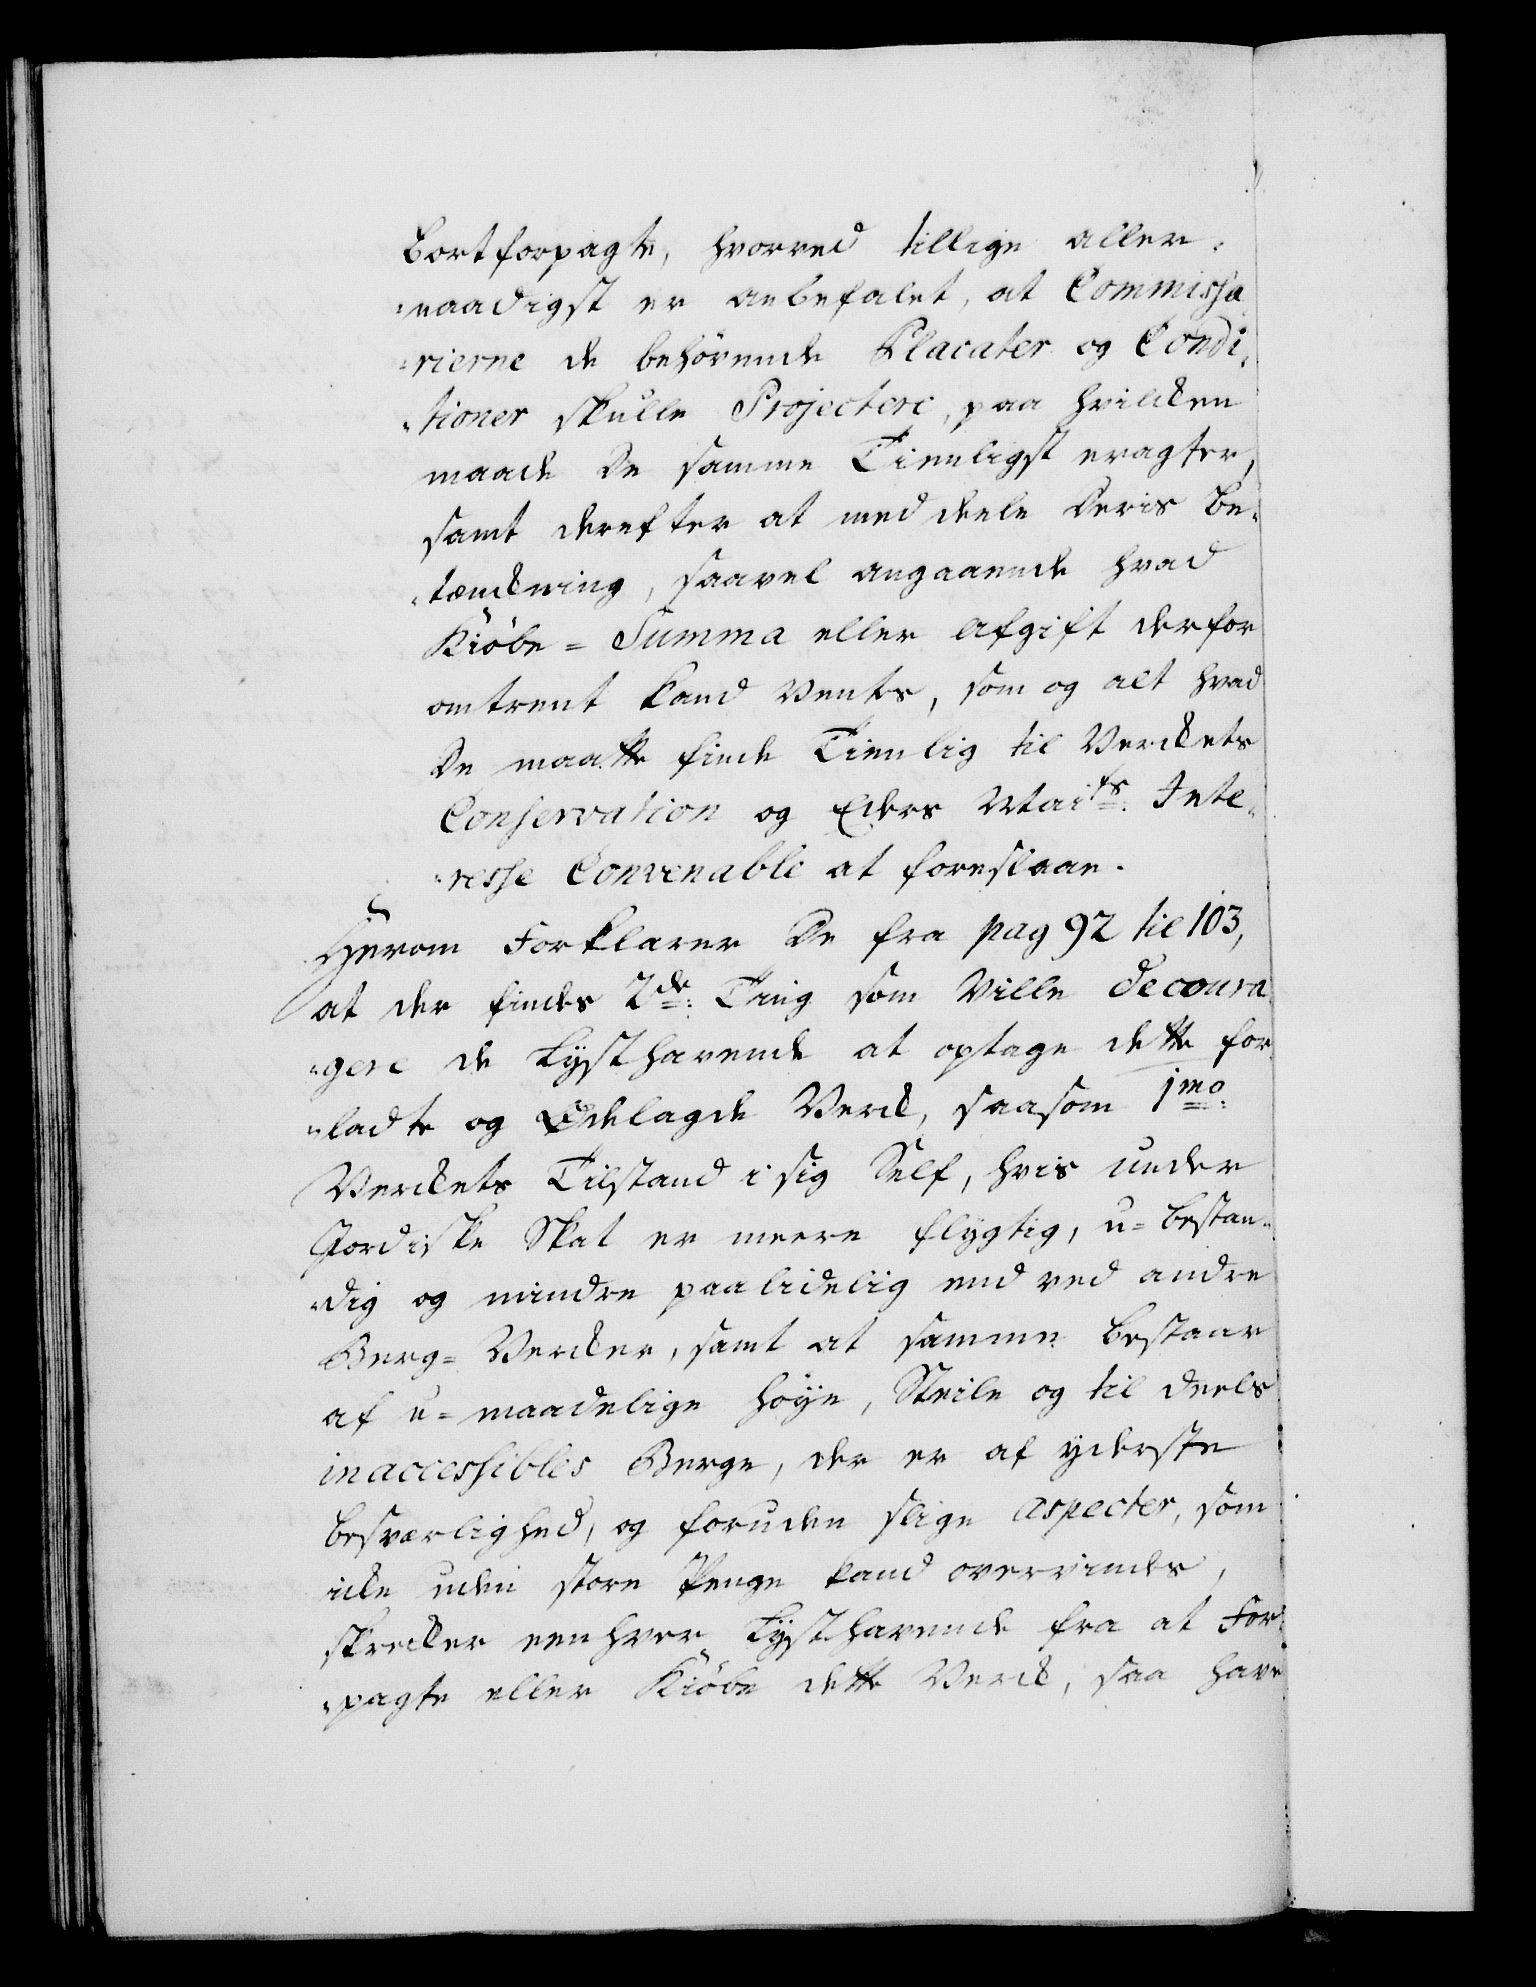 bortforpagte, hvorved tillige aller-
-naadigst er anbefalet, at Commissa
-rierne de behørende Placater og Condi-
-tioner skulle Projectere, paa hvilcken
maade De samme Tienligst eragter,
samt derefter at meddeele Deris be-
-tænckning, saavel angaaende hvad
Kiöbe = Summa eller Afgift derfor
omtrent kand Ventes, som og alt hvad
De maatte finde Tienlig til Verckets
Conservation og Eders Maits. Inte-
-resse Convenable at foreslaae.
Herom Forklarer De fra pag 92 til 103,
at der findes 2de: Ting som Ville decoura
-gere de Lysthavende at optage dette for
-ladte og Ødelagde Verck, saasom 1mo:
Verckets Tilstand i sig Self, hvis under
Jordiske Skat er meere flygtig, u=bestan-
-dig og mindre paalidelig end ved andre
Berg= Vercker, samt at samme bestaar
af u=maadelige høye, Steile og til deels
inaccessibles Berge, der er af yderste
besværlighed, og foruden slige aspecter, som
icke uden store Penge kand overvindes,
skrecker eenhver Lysthavende fra at For
-pagte eller Kiöbe dette Verck, saa have